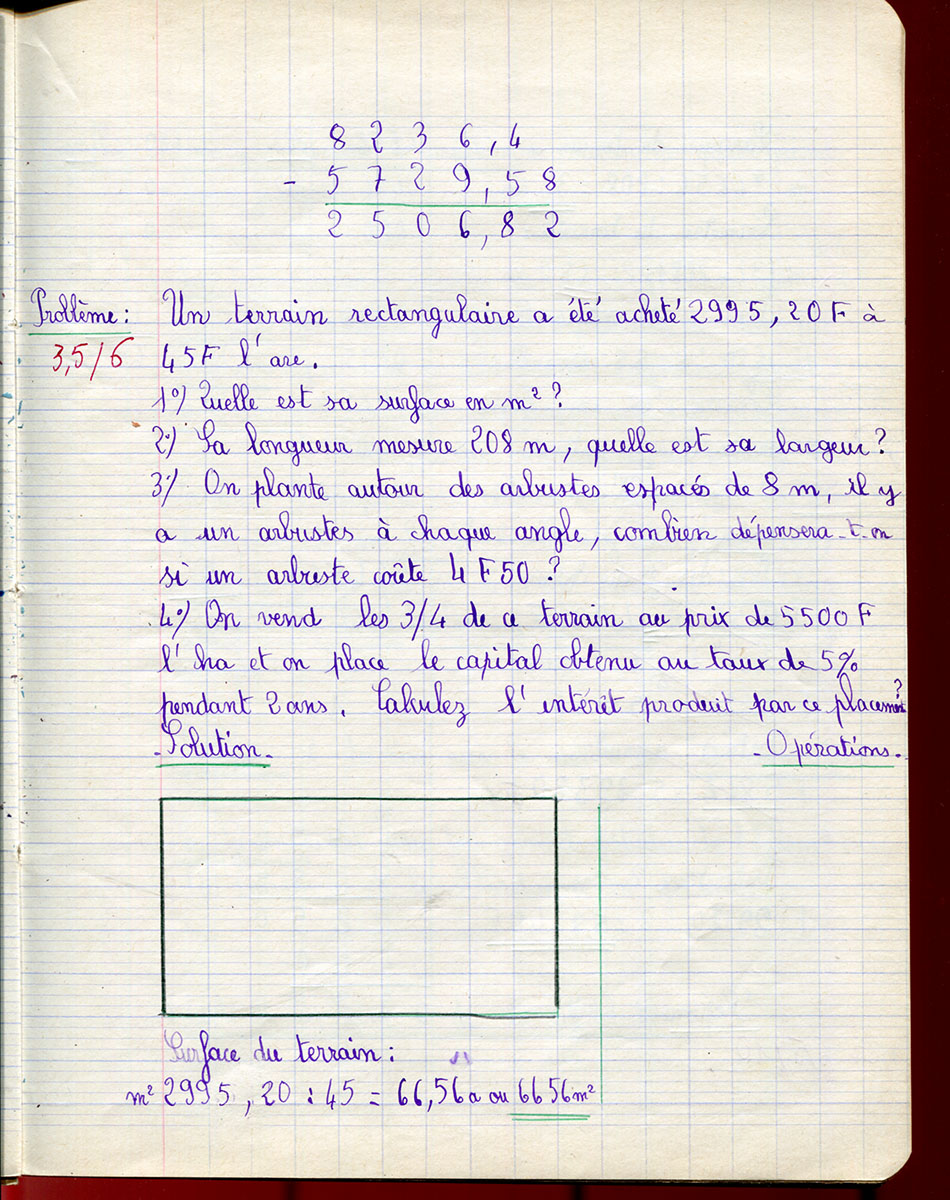 8 2 3 6 , 4
- 5 7 2 9 , 5 8
2 5 0 6 , 8 2
Problème : Un terrain rectangulaire a été acheté 2995 , 20 F à
3,5/6 45 F l'are .
1°) Quelle est sa surface en m² ?
2°) Sa longueur mesure 208 m , quelle est sa largeur ?
3°) On plante autour des arbustes espacés de 8 m , il y
a un arbustes à chaque angle , combien dépensera-t-on
si un arbuste coûte 4 F 50 ?
4°) On vend les 3/4 de ce terrain au prix de 5500 F
l'ha et on place le capital obtenu au taux de 5%
pendant 2 ans . Calculez l'intérêt produit par ce placement ?
- Solution - - Opérations .
Surface du terrain :
m² 2995 , 20 : 45 = 66,56 a ou 6656 m²